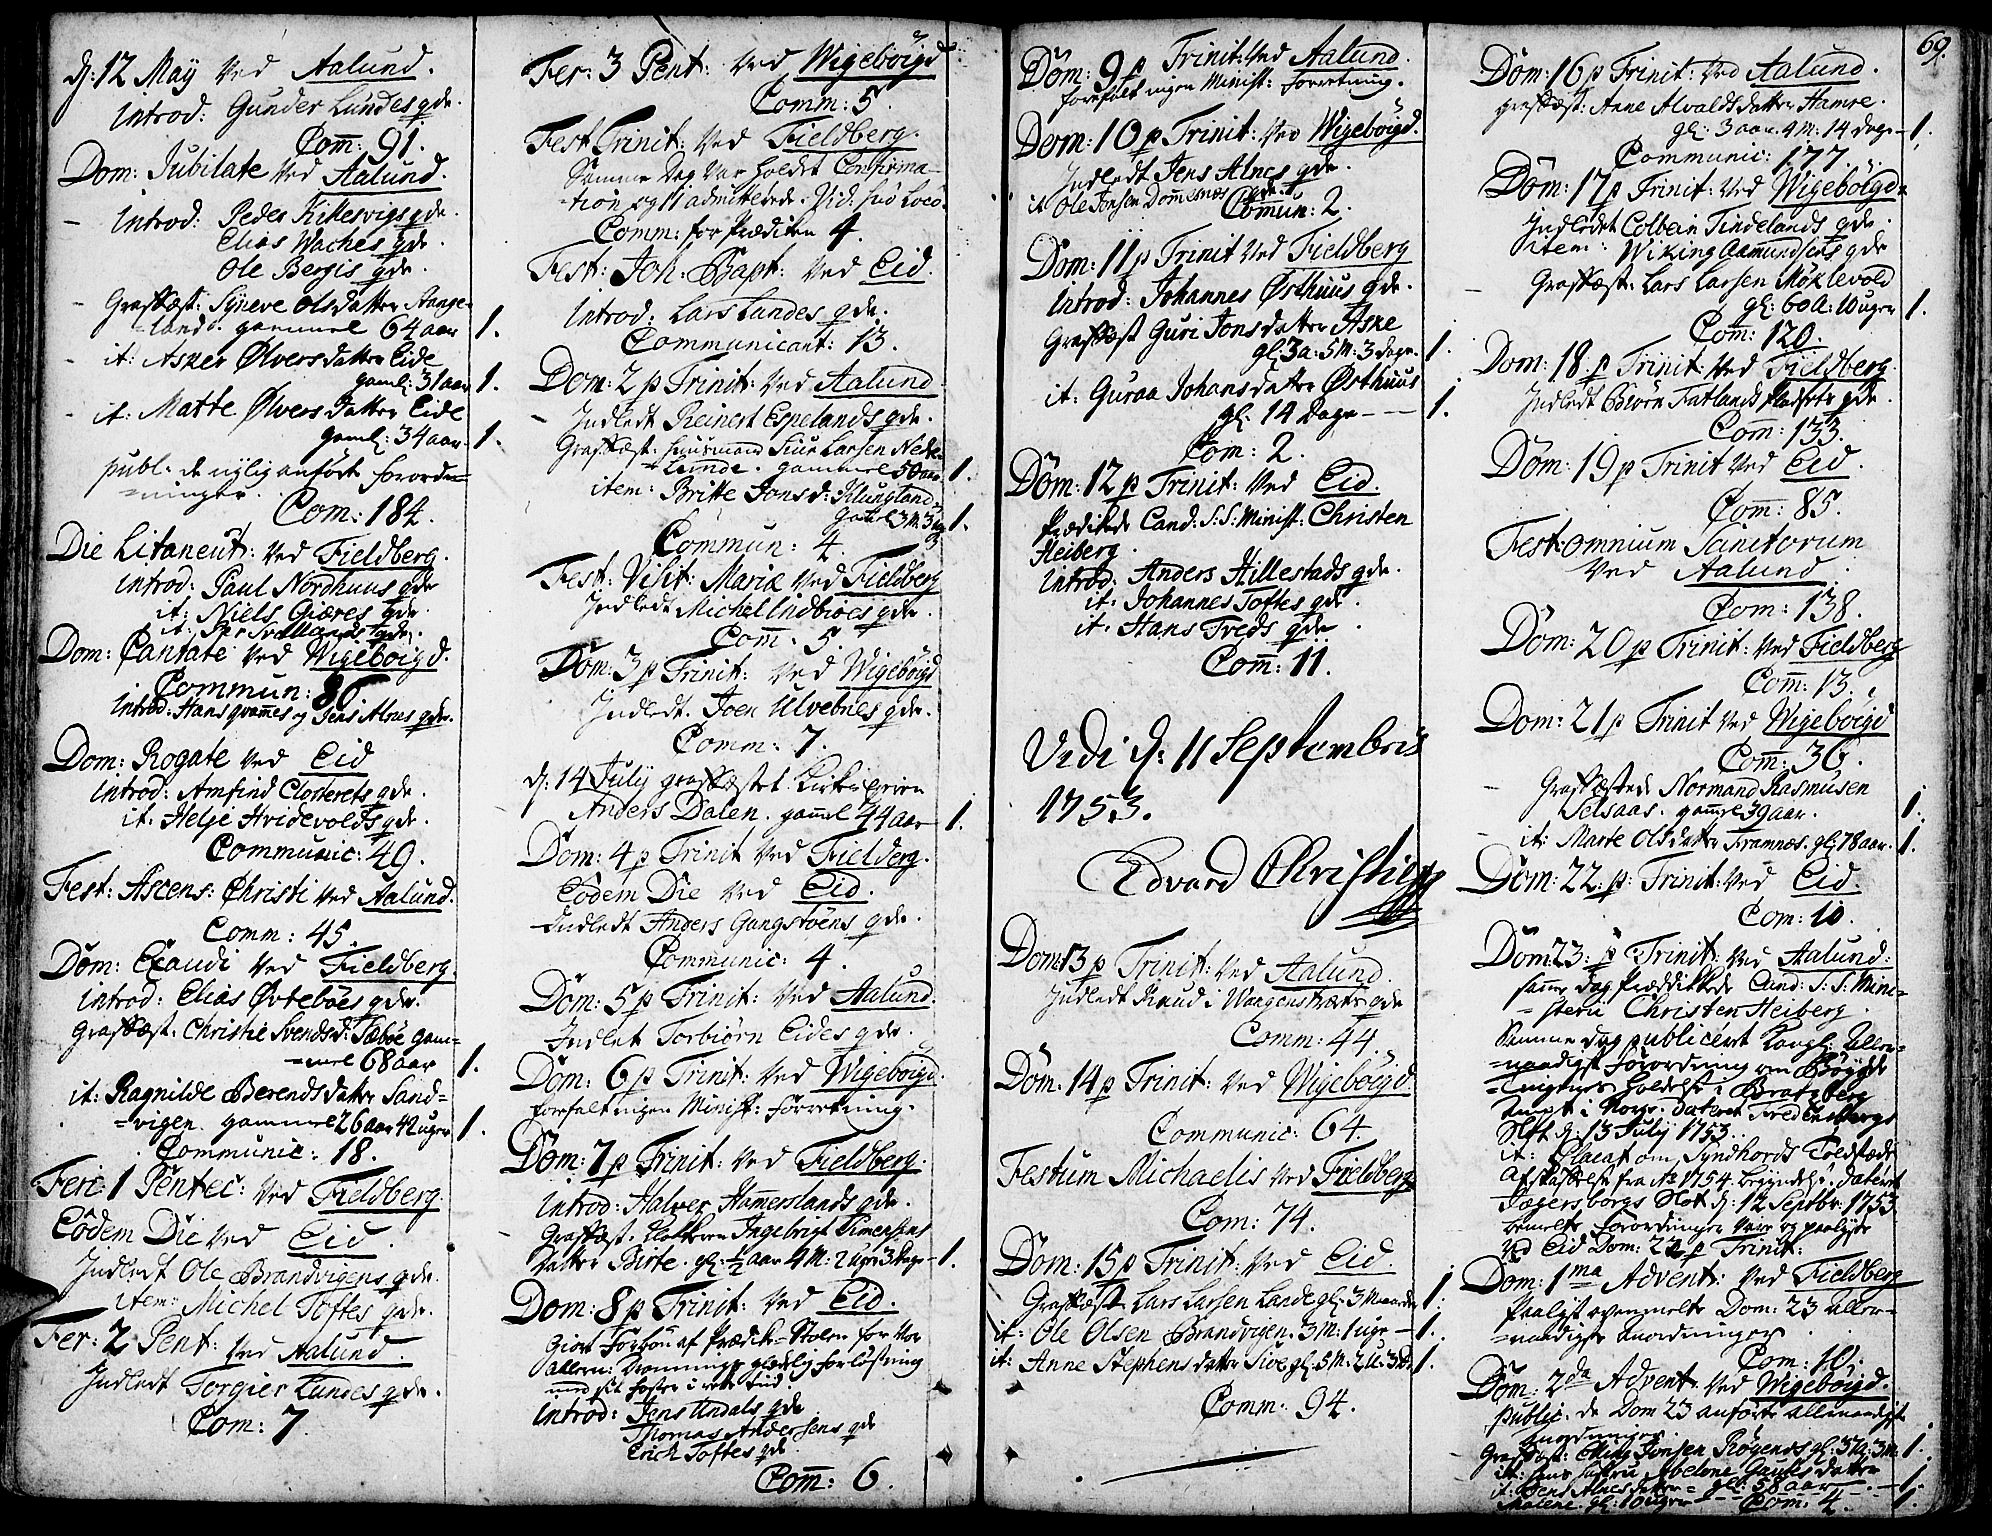 d: 12 May ved Aalund.
Introd: Gunder Lundes qde.
Com: 91.
Dom: Jubilate ved Aalund.
Introd: Peder Kikesvigs qde.
Elias Waches qde.
Ole Bergis qde.
Graffæst: Syneve Olsdatter Aange-
=land. gammel 64 aar 1.
it: Asker Ølversdatter Eide
gaml: 31 aar 1.
it: Matte Ølvers datter Eide
gaml: 34 aar 1.
publ: de nylig anførte forord-
=ninger.
Com: 184.
Die Litaneut: ved Fieldberg.
Introd: Paul Nordhuus qde
it: Niels Giæres qde.
it: Per Svollands qde.
Dom: Cantate ved Wigebøigd.
Commun: 86
Introd: Hans qvames og Jens Alnes qde.
Dom: Rogate ved Eid
Introd: Amfind Closterets qde.
it: Helje Hvidevolds qde.
Communic: 49.
Fest: Ascens: Christi ved Aalund.
Comm: 45.
Dom: Exaudi ved Fieldberg.
Introd: Elias Øvtebøes qde.
Graffæst: Christie Svendsd: Sæbøe gam-
=mel 68 aar 1.
it: Ragnilde Berends datter Sand=
=vigen. gammel 26 aar 42 uger 1.
Communic: 18.
Feri: 1 Pentec: ved Fieldberg.
Eodem Die ved Eid.
Indledt Ole Brandvigens qde.
item: Michel Toftes qde.
Fer: 2 Pent: ved Aalund.
Indledt Torgier Lundes qde.
Com: 7.
Fer: 3 Pent: ved Wigebøigd
Comm: 5.
Fest Trinit: ved Fieldberg.
Samme Dag var holdet Confirma-
-tion og 11 admitterede. Vid: suo Loco.
Comm: for Prædiken 4.
Fest: Joh: Bapt: ved Eid.
Introd: Lars Landes qde.
Communicant: 13.
Dom: 2 p Trinit: ved Aalund
Indledt Reinert Espelands qde.
Graffæst: huusmand Siur Larsen Nedre
Lunde. gammel 50 aar 1.
item: Britte Jonsd: Klungland
gamel 3 M: 3 1.
Commun: 4.
Fest: Visit: Mariæ ved Fieldberg
Indledt Michel Indbiøes qde.
Com: 5.
Dom: 3 p Trinit: ved Wigebøigd
Indledt. Joen Ulvebnes qde.
Comm: 7.
d: 14 July graffæstet
Anders Dalen. gamel 44 aar 1.
Dom: 4 p Trinit ved Fielderg.
Eodem Die ved Eid.
Indledt Anders Gangstøens qde.
Communic: 4.
Dom: 5 p Trinit: ved Aalund.
Indlet Torbiørn Eides qde.
Dom: 6 p Trinit: ved Wigebøigd.
forefalt ingen Minist: forretning.
Dom: 7 p Trinit: ved Fieldberg.
Introd: Halver Hamerslands qde.
Graffæst: Klokkeren Ingebrigt Simensens
datter Birte. gl: ½ aar 4 M: 2 uger 3 dage 1.
Dom: 8 p Trinit: ved Eid.
Giort Forbøn af Prædik=Stolen for vor
allern: Dronnings glædelig forløsning
med sit foster i rette tiid.
Introd: Jens Undals qde
Thomas Andersens qde
Erich Toftes qde
Com: 6.
Dom: 9 p Trinit: ved Aalund.
forefalt ingen Minist: forretning.
Dom: 10 p Trinit: ved Wigebøigd.
Indledt Jens Alnes qde.
it: Ole Jonsen Dommesnes qde.
Comun: 2.
Dom: 11 p Trinit ved Fieldberg
Introd: Johannes Østhuus qde.
Graffæst Guri Jonsdatter Aske
gl: 3 a: 5 M: 3 dage. 1.
it: Guraa Johansdatter Østhuus
gl: 14 dage - - - 1.
Com: 2.
Dom: 12 p Trinit: ved Eid.
Prædikede Cand: S: S: Minist: Christen
Heiberg.
Introd: Anders Hillestads qde.
it: Johannes Toftes qde.
it: Hans Treds qde
Com: 11.
Vidi d: 11 Septembris
1753.
Edvard Christie
Dom 13 p Trinit: ved Aalund.
Indledt Knud i Waagenstrætets qde
Comm: 44.
Dom: 14 p Trinit: ved Wigebøigd
Communic: 64.
Festum Michaelis ved Fieldberg
Com: 74.
Dom: 15 p Trinit: ved Eid.
Graffæst Lars Larsen Lande gl: 3 Maaneder 1.
it: Ole Olsen Brandvigen. 3 M: 1 uge 1.
it: Anne Stephens datter Sioe gl: 5 M: 2 U: 3 d: 1.
Comm: 94.
69.
Dom: 16 p Trinit: ved Aalund.
graffæst: Anne Alvaldsdatter Hamre.
gl: 3 aar. 4 M: 14 dage 1.
Communic: 177.
Dom: 17 p Trinit: ved Wigebøigd
Indledet Colbein Tindelands qde
item: Wiking Aamundsens qde
Graffæst: Lars Larsen Møklevold
gl: 60 a: 10 uger 1.
Com: 120.
Dom: 18. p Trinit: ved Fieldberg.
Indledt Biørn Fatlands pladsets qde.
Com: 133.
Dom: 19 p Trinit ved Eid.
Com: 85.
Fest: omnium Sanctorum
ved Aalund.
Com: 138.
Dom: 20 p Trinit: ved Fieldberg
Com: 13.
Dom: 21 p Trinit ved Wigebøigd
Com: 36.
Graffæstede Normand Rasmusen
Selsaas. gammel 39 aar. 1.
it: Marte Olsdatter Framnæs. gl: 78 aar. 1.
Dom: 22. p: Trinit: ved Eid.
Com: 10.
Dom 23: p Trinit: ved Aalund:
samme dag Prædikede Cand: S: S: Mini-
=sterii Christen Heiberg.
Samme dag publiceret Kongl: Aller-
=naadigst Forordning om Bøigde
Tingenes holdelse i Bratzberg
Ampt i Norge. Dateret Fredensborgs
Slot d: 13 July 1753.
it: Placat om Syndhords Toldstæds
Afskaffelse fra Ao 1754. begyndelse. dateret
Jægersborgs Slot d: 12 Septbr: 1753
bemelte Forordninger
ved Eid Dom: 22 p Trinit:
Dom: 1ma Advent: ved Fieldberg
Paalyst ovenmelte Dom: 23 aller-
=naadigste Anordninger.
Com: 10.
Dom: 2da Advent: ved Wigebøigd.
public: de Dom 23 anførte allernaadigste
Anordninger.
Graffæst: Elling Jonsen Røgends gl: 37 a: 3 M: 1.
it: hans hustru Abelone Gauts datter
gl: 58 aar 1.
it: Jens Alnes datter
Malene. gl: 10 uger - - 1.
Com: 4.